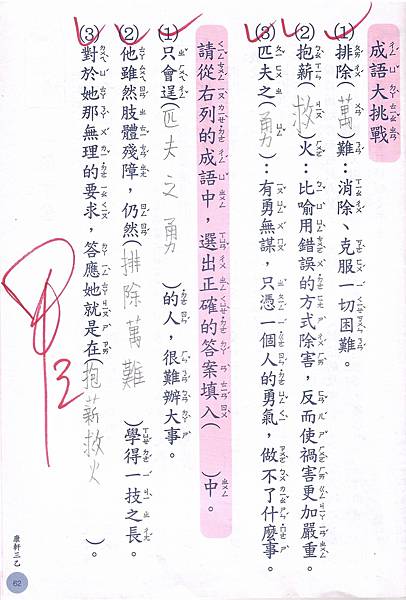 成語大挑戰
(1)排除(萬)難：消除、克服一切困難。
(2)抱薪(救)火：比喻用錯誤的方式除害，反而使禍害更加嚴重。
(3)匹夫之(勇)：有勇無謀，只憑一個人的勇氣，做不了什麼事。
請從右列的成語中，選出正確的答案填入( )中。
(1)只會逞(匹夫之勇)的人，很難辦大事。
(2)他雖然肢體殘障，仍然(排除萬難)學得一技之長。
(3)對於她那無理的要求，答應她就是在(抱薪救火)。
康軒三乙
62